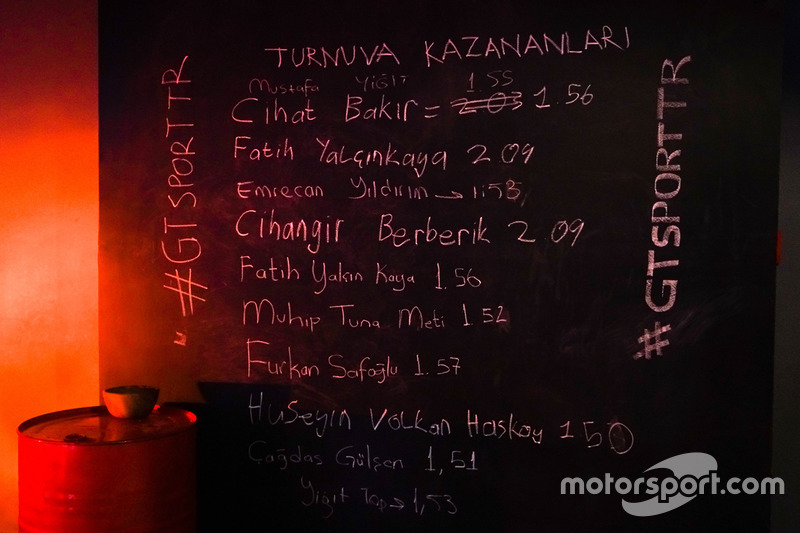 TURNUVA KAZANANLARI
Mustafa YİĞİT 1.55
Cihat Bakır = 203 1.56
Fatih Yalçınkaya 2.09
Emrecan Yıldırım → 1.53
Cihangir Berberik 2.09
Fatih Yakın Kaya 1.56
Muhip Tuna Meti 1.52
Furkan Safoğlu 1.57
Hüseyin Volkan Haskoy 1 50
Çağdaş Gülşen 1,51
Yiğit Top → 1,53
#GTSPORTTR
#GTSPORTTR
motorsport.com